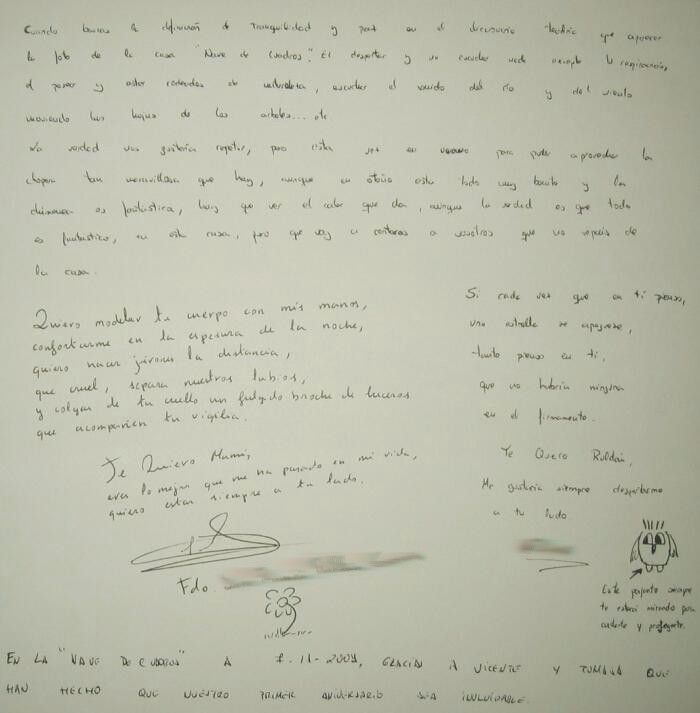 Cuando buscas la definición de tranquilidad y paz en el diccionario tendría que aparecer
la foto de la casa "Nave de Cuadros". El despertar y no escuchar nada excepto tu respiración,
el pasear y estar rodeados de naturaleza, escuchar el sonido del río y del viento
moviendo las hojas de los arboles... etc.
La verdad nos gustaría repetir, pero esta vez en verano para poder aprovechar la
chopera tan maravillosa que hay, aunque en otoño esta todo muy bonito y la
chimenea es fantástica, hay que ver el calor que da, aunque la verdad es que todo
es fantástico, en esta casa, pero que voy a contaros a vosotros que no sepais de
la casa.
Quiero modelar tu cuerpo con mis manos,
confortarme en la espesura de la noche,
quiero hacer jirones la distancia,
que cruel, separa nuestros labios,
y colgar de tu cuello un fulgido broche de luceros
que acompañen tu vigilia.
Te Quiero Mami,
eres lo mejor que me ha pasado en mi vida,
quiero estar siempre a tu lado.
Fdo.
Si cada vez que en ti pienso,
una estrella se apagase,
tanto pienso en ti,
que no habría ninguna
en el firmamento.
Te Quero Roldán,
Me gustaría siempre despertarme
a tu lado
Este pajarito siempre
te estará mirando para
cuidarte y protegerte.
EN LA "NAVE DE CUADROS" A -11-2009, GRACIAS A VICENTE Y QUE
HAN HECHO QUE NUESTRO PRIMER ANIVERSARIO SEA INOLVIDABLE.